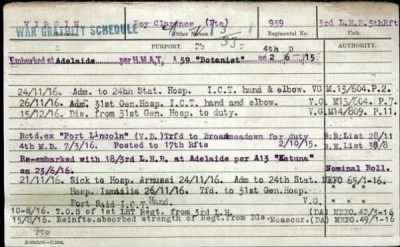 Roy Clarence (Pte) 959 3rd L.H.R. 5thRft
WAR GRATUITY SCHEDULE Other Names Regimental No. Unit.
PURPORT. 4th D AUTHORITY.
Embarked at Adelaide per H.M.A.T. A 59 "Botanist" on 2 6 15
24/11/16. Adm. to 24th Stat. Hosp. I.C.T. hand & elbow. VG M.13/604.P.2.
26/11/16. Adm. 31st Gen.Hosp. I.C.T. hand and elbow. V.G. M13/604. P.7.
15/12/16. Dis. from 31st Gen.Hosp. to duty. V.G. M14/809. P.11.
Retd.ex "Port Lincoln" (V.D.) Trfd to Broadmeadown for duty R.R:List 28/11
4th M.D. 7/3/16. Posted to 17th Rfts 2/10/15. R:R:List 30/8
Re-embarked with 18/3rd L.H.R. at Adelaide per A13 "Katuna"
on 23/6/16. Nominal Roll.
21/11/16. Sick to Hosp. Arnussi 24/11/16. Adm to 24th Stat. MEFO 65/1-16.
Hosp. Ismailia 26/11/16. Tfd. to 31st Gen.Hosp.
Port Said I.C.T. Hand.
10-8/16. T.O.S of 1st LHT Regt. from 3rd L.H. (DA)
Reinfts.absorbed strength of Regt.from Dis. Moascar. (DA)